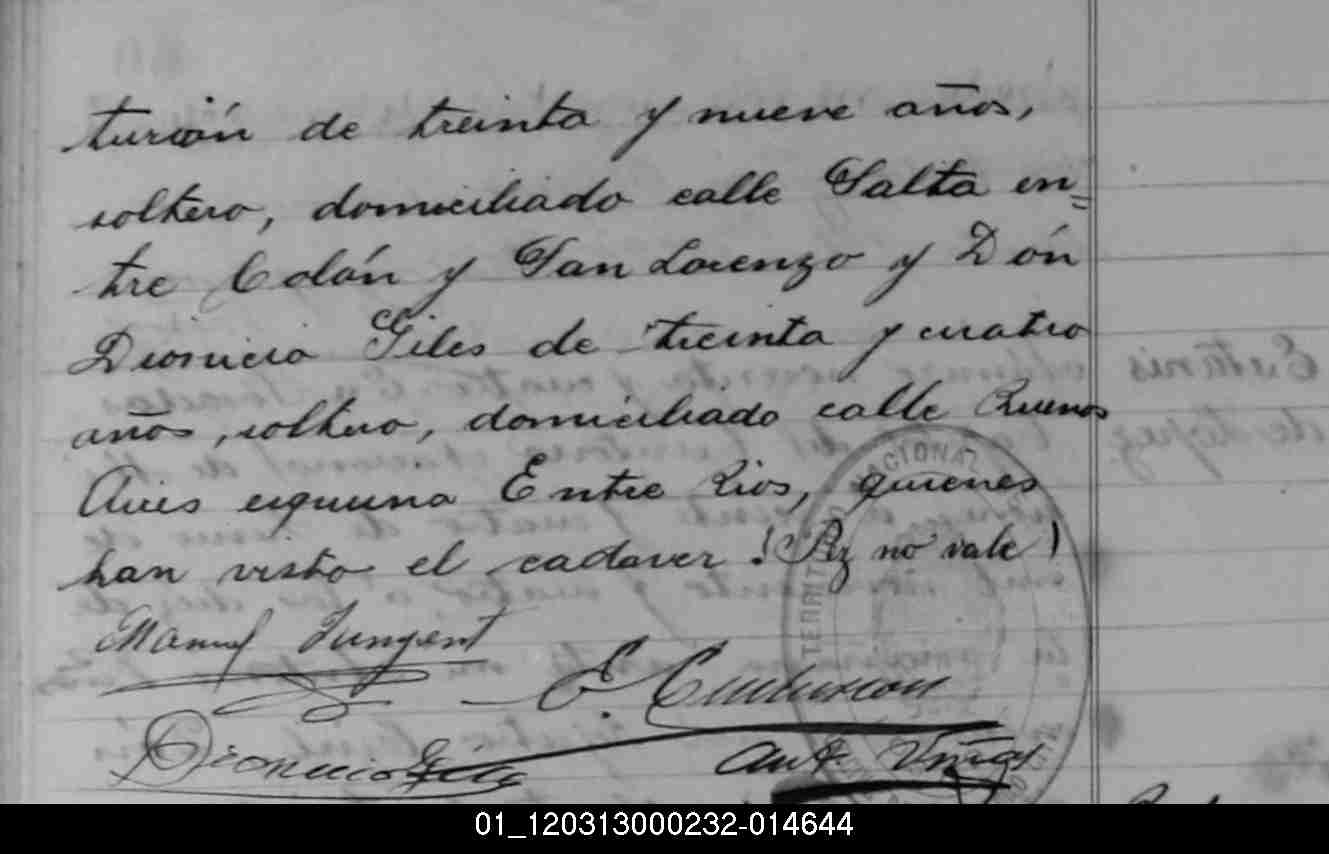 turión de treinta y nueve años,
soltero, domiciliado calle Salta en=
tre Colón y San Lorenzo y Dón
Dionicio Giles de treinta y cuatro
años, soltero, domiciliado calle Buenos
Aires esquina Entre Rios, quienes
han visto el cadaver ! no vale !
Manuel
E.
Dionicio Giles
Viñas
NACIONAL
TERRIT
01_120313000232-014644